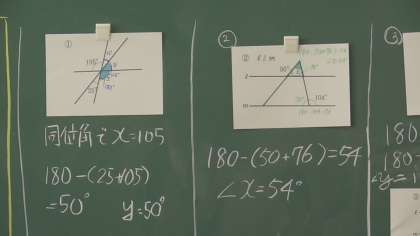 ①
105°
25°
同位角で x=105
180-(25+105)
=50°
y=50°
②
② ℓ//m
ℓ
m
50°
76°
104°
180-(50+76)=54
∠x=54°
③
180
180-
∠y=1
③